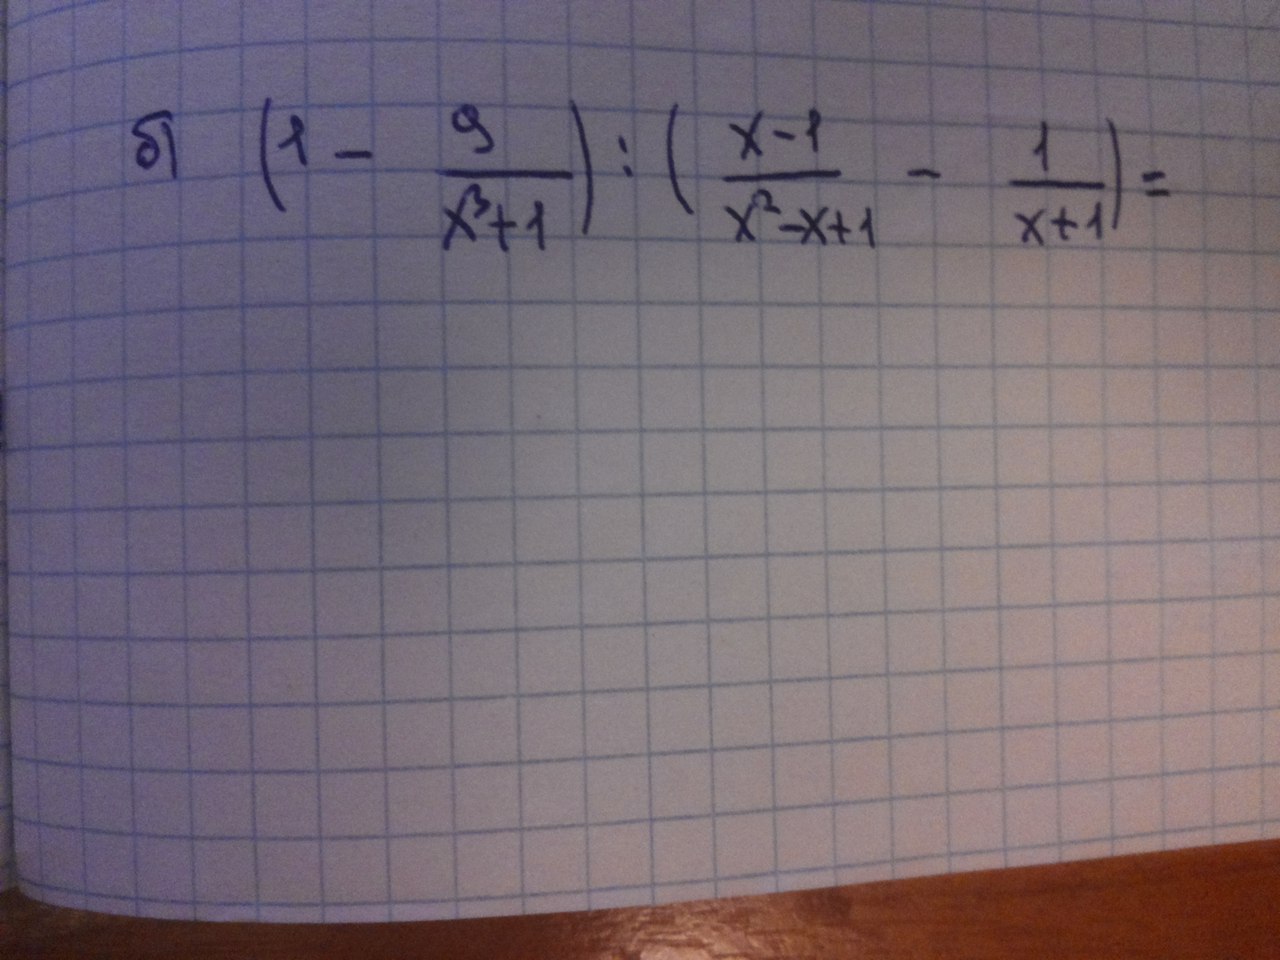 б) (1 - 9/(x³+1)) : ((x-1)/(x²-x+1) - 1/(x+1)) =